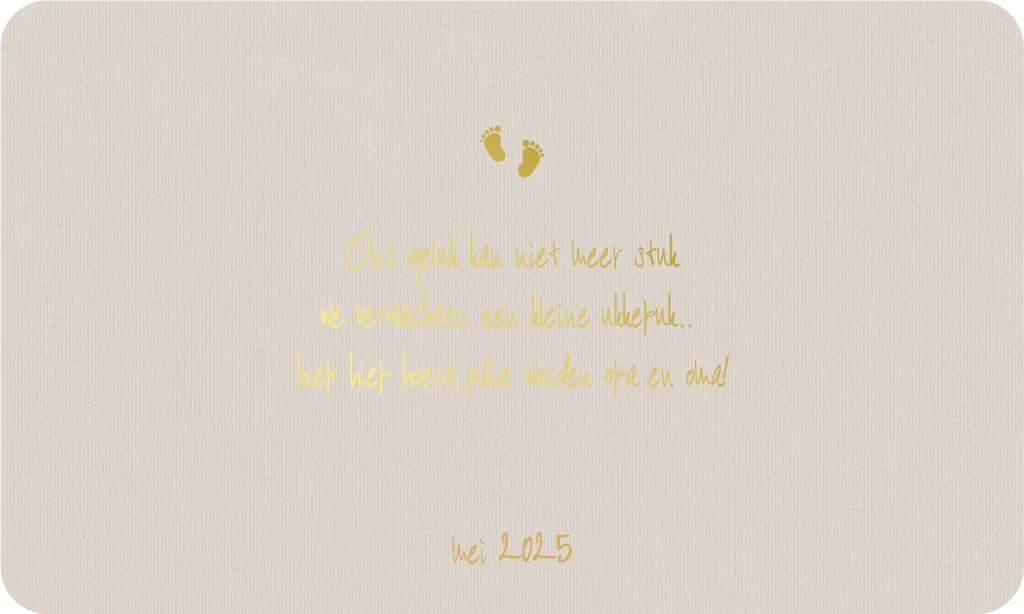 Ons geluk kan niet meer stuk
we verwachten een kleine ukkepuk..
hiep hiep hoera jullie worden opa en oma!
mei 2025